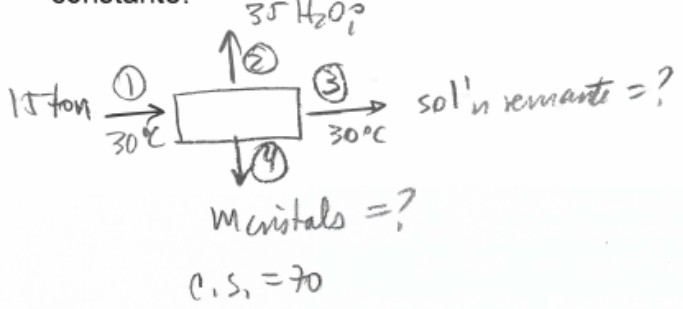 constante.
35 H₂O;
②
15 ton ① ③ sol'n remante = ?
30°C 30°C
④
m cristals = ?
C.S. = 70